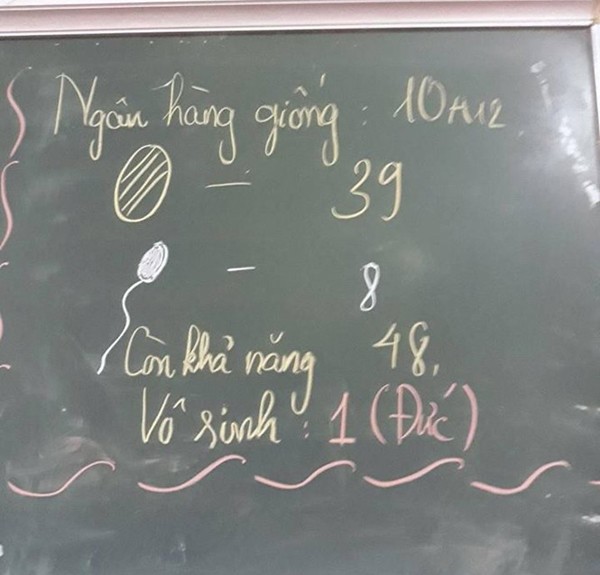 Ngân hàng giống : 10A12
— 39
— 8
Còn khả năng 48.
Vô sinh : 1 (Đức)